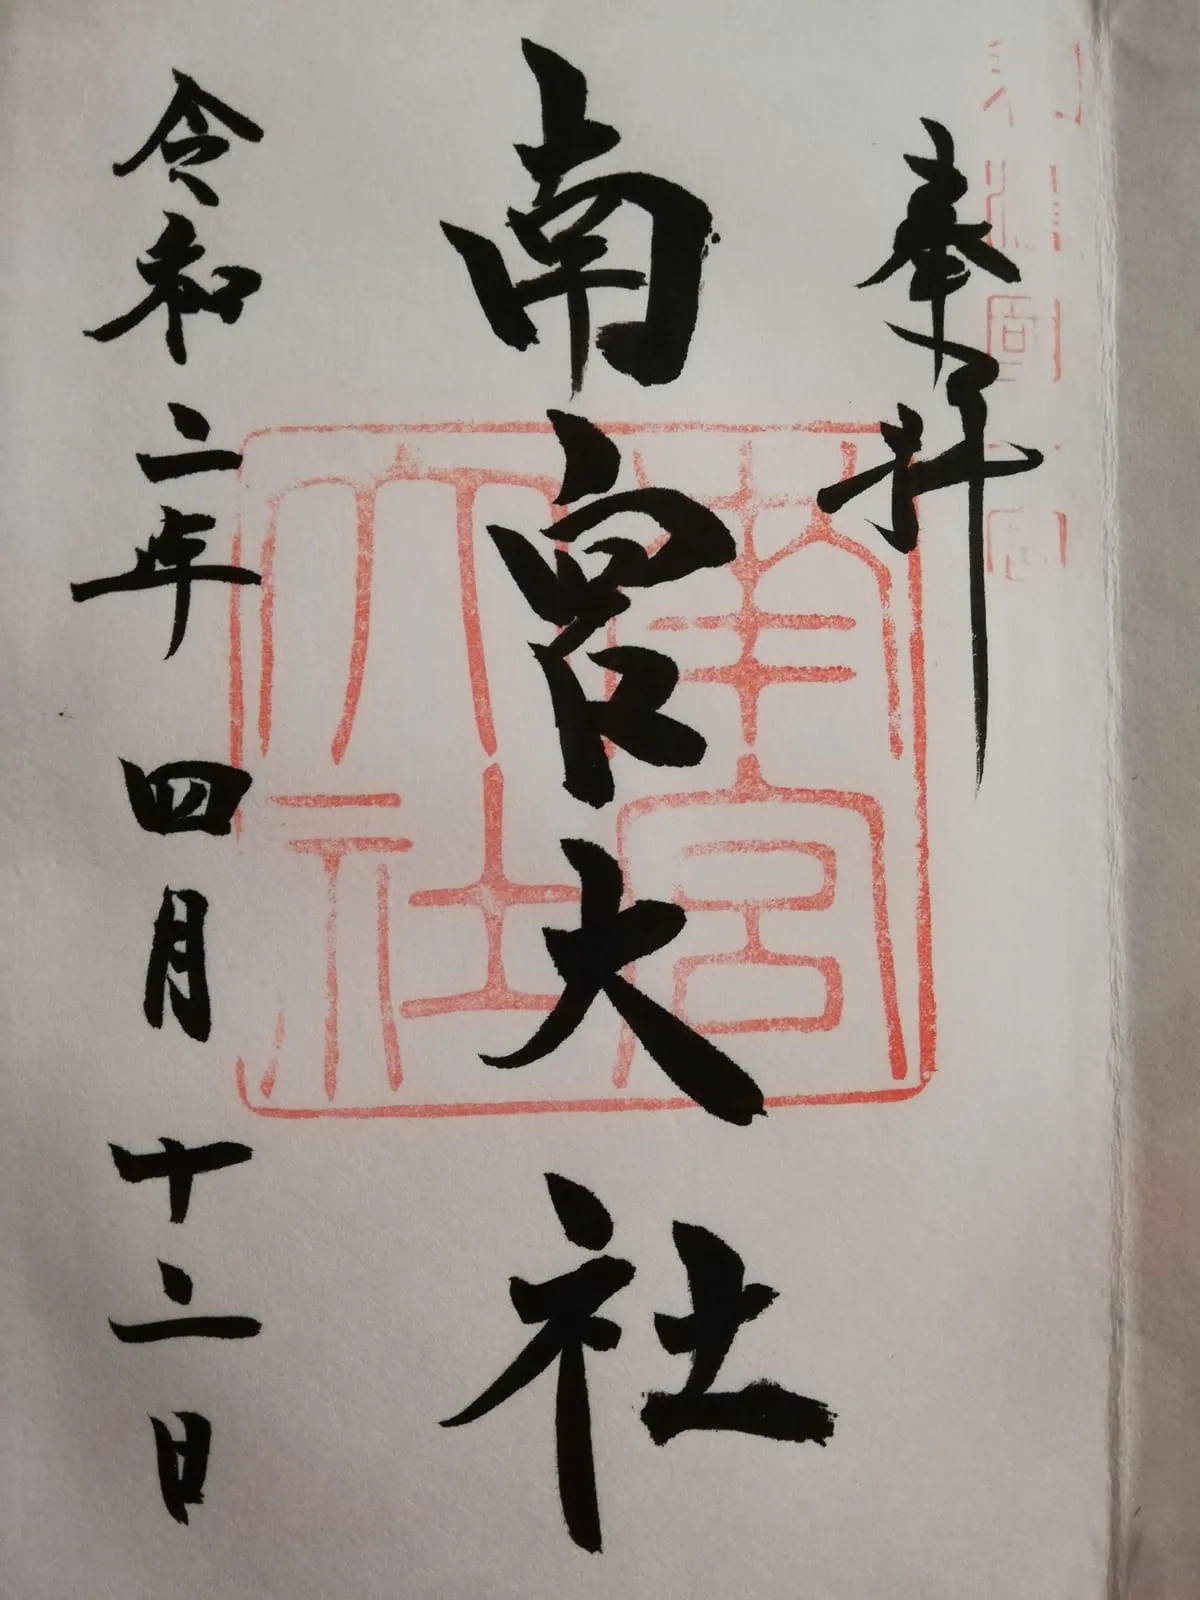 奉拝
南宮大社
南宮
大社
令和二年四月十二日